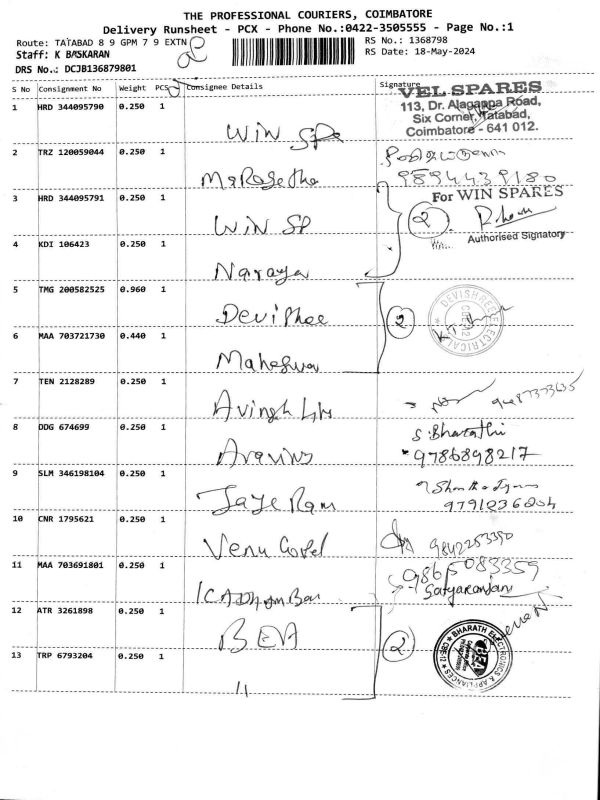 THE PROFESSIONAL COURIERS, COIMBATORE
Delivery Runsheet - PCX - Phone No.:0422-3505555 - Page No.:1
Route: TATABAD 8 9 GPM 7 9 EXTN
RS No.: 1368798
Staff: K BASKARAN
RS Date: 18-May-2024
DRS No.: DCJB136879801
S No Consignment No Weight PCS Consignee Details Signature
VEL SPARES
113, Dr. Alagappa Road,
Six Corner, Tatabad,
Coimbatore - 641 012.
1 HRD 344095790 0.250 1
WIN SPa
2 TRZ 120059044 0.250 1
9894439180
3 HRD 344095791 0.250 1
WIN SP
For WIN SPARES
2
Authorised Signatory
4 KDI 106423 0.250 1
Naraya
5 TMG 200582525 0.960 1
Devi shree
2
DEVISHREE ELECTRICAL
CBE-12
6 MAA 703721730 0.440 1
Maheswa
7 TEN 2128289 0.250 1
9487373635
8 DDG 674699 0.250 1
Aravins
S. Bharathi
9786898217
9 SLM 346198104 0.250 1
Jaye Ram
9791236204
10 CNR 1795621 0.250 1
Venu Gopel
9842253390
11 MAA 703691801 0.250 1
9865083359
Satyaranjan
12 ATR 3261898 0.250 1
BEA
2
BHARATH ELECTRONICS & APPLIANCES
CBE-12
BEA
13 TRP 6793204 0.250 1
"